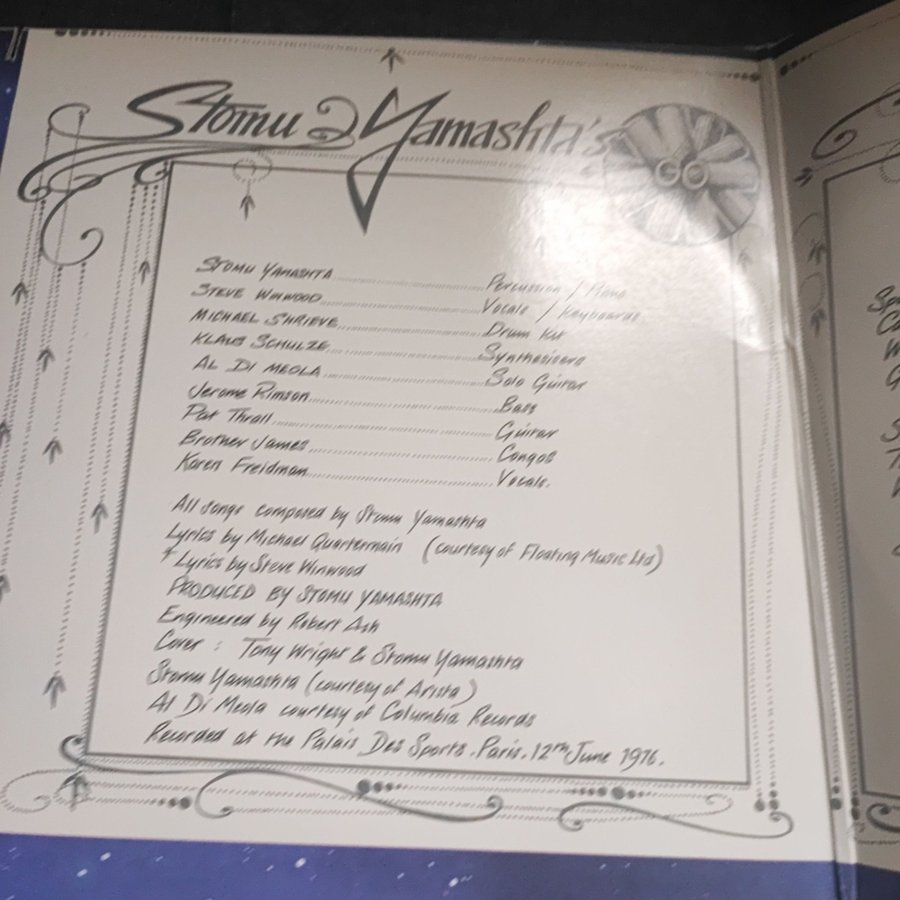 Stomu Yamashta's
GO
Stomu Yamashta Percussion / Piano
Steve Winwood Vocals / Keyboards
Michael Shrieve Drum Kit
Klaus Schulze Synthesisers
Al Di Meola Solo Guitar
Jerome Rimson Bass
Pat Thrall Guitar
Brother James Congos
Karen Freidman Vocals.
All songs composed by Stomu Yamashta
Lyrics by Michael Quartermain (courtesy of Floating Music Ltd)
† Lyrics by Steve Winwood
PRODUCED BY STOMU YAMASHTA
Engineered by Robert Ash
Cover : Tony Wright & Stomu Yamashta
Stomu Yamashta (courtesy of Arista)
Al Di Meola courtesy of Columbia Records
Recorded at the Palais Des Sports. Paris. 12TH June 1976.